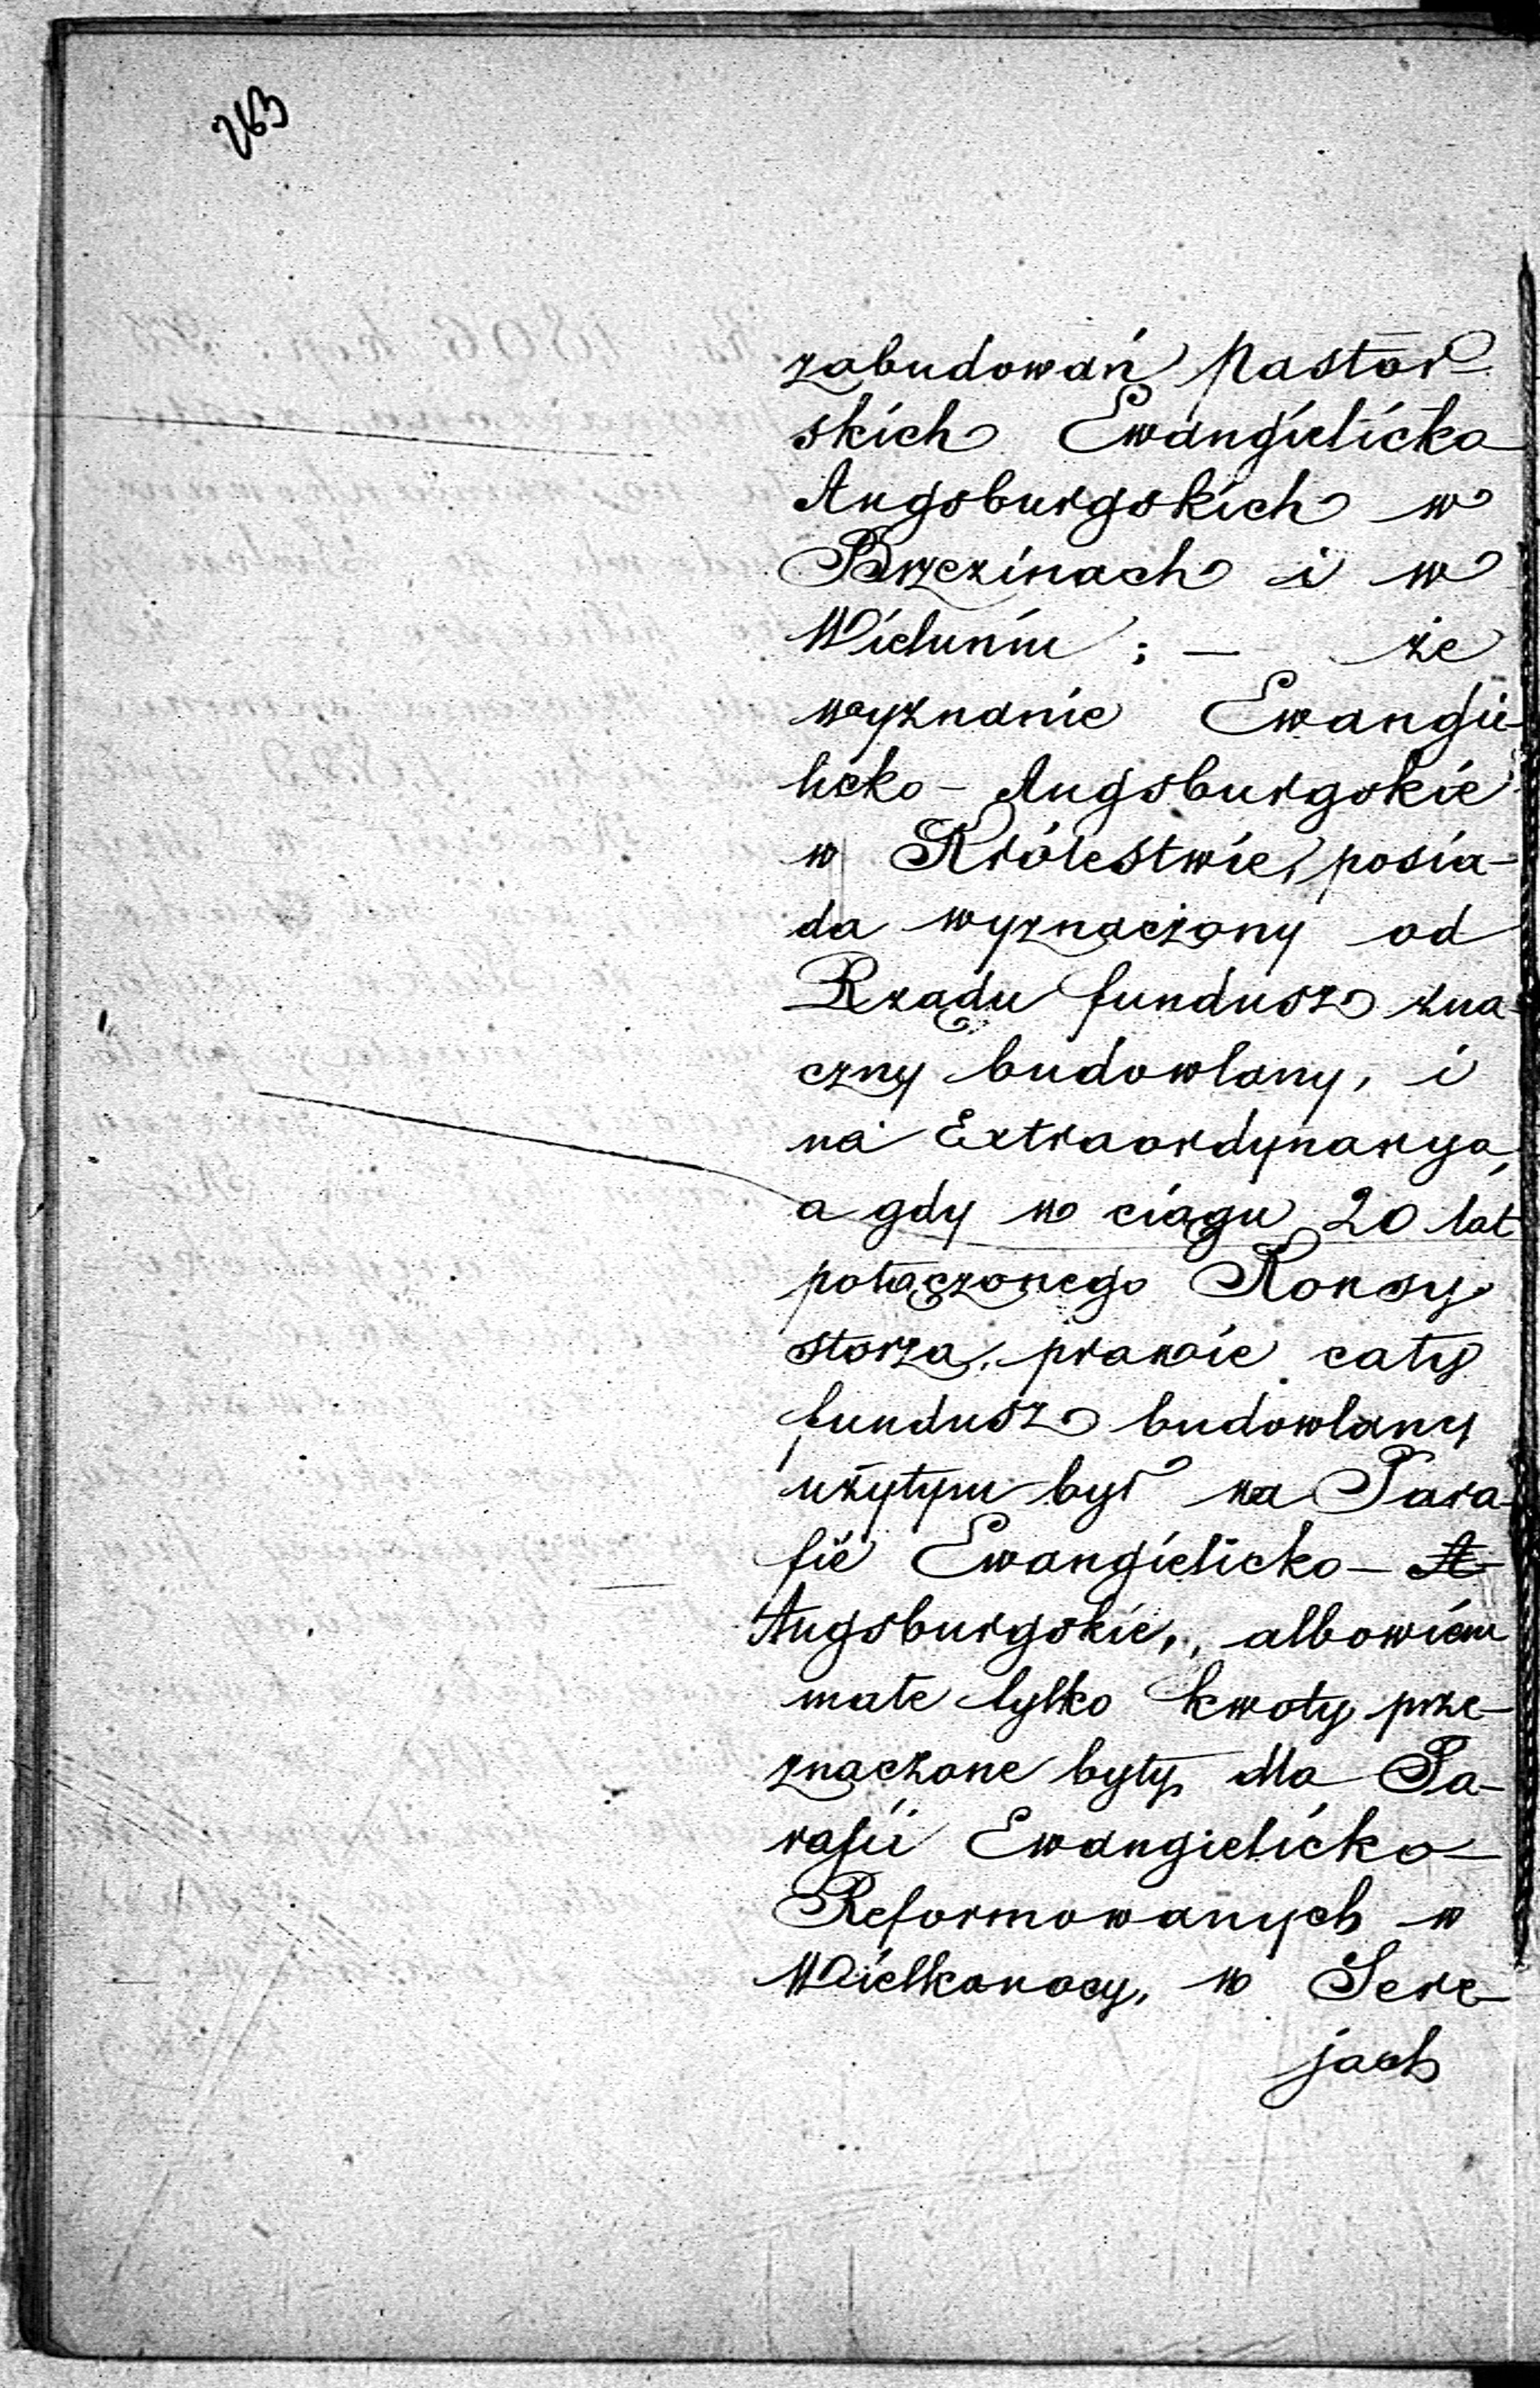 263
zabudowań Pastor-
skich Ewangielicko
Augsburgskich w
Brzezinach i w
Wieluniu ; — że
wyznanie Ewangie-
licko - Augsburgskie
w Królestwie, posia-
da wyznaczony od
Rządu fundusz zna-
czny budowlany, i
na Extraordynarya,
a gdy w ciągu 20 lat
połączonego Konsy-
storza, prawie cały
fundusz budowlany
użytym był na Para-
fie Ewangielicko - A
Augsburgskie, albowiem
małe tylko kwoty prze-
znaczone były dla Pa-
rafii Ewangielicko -
Reformowanych w
Wielkanocy, w Sere-
jach